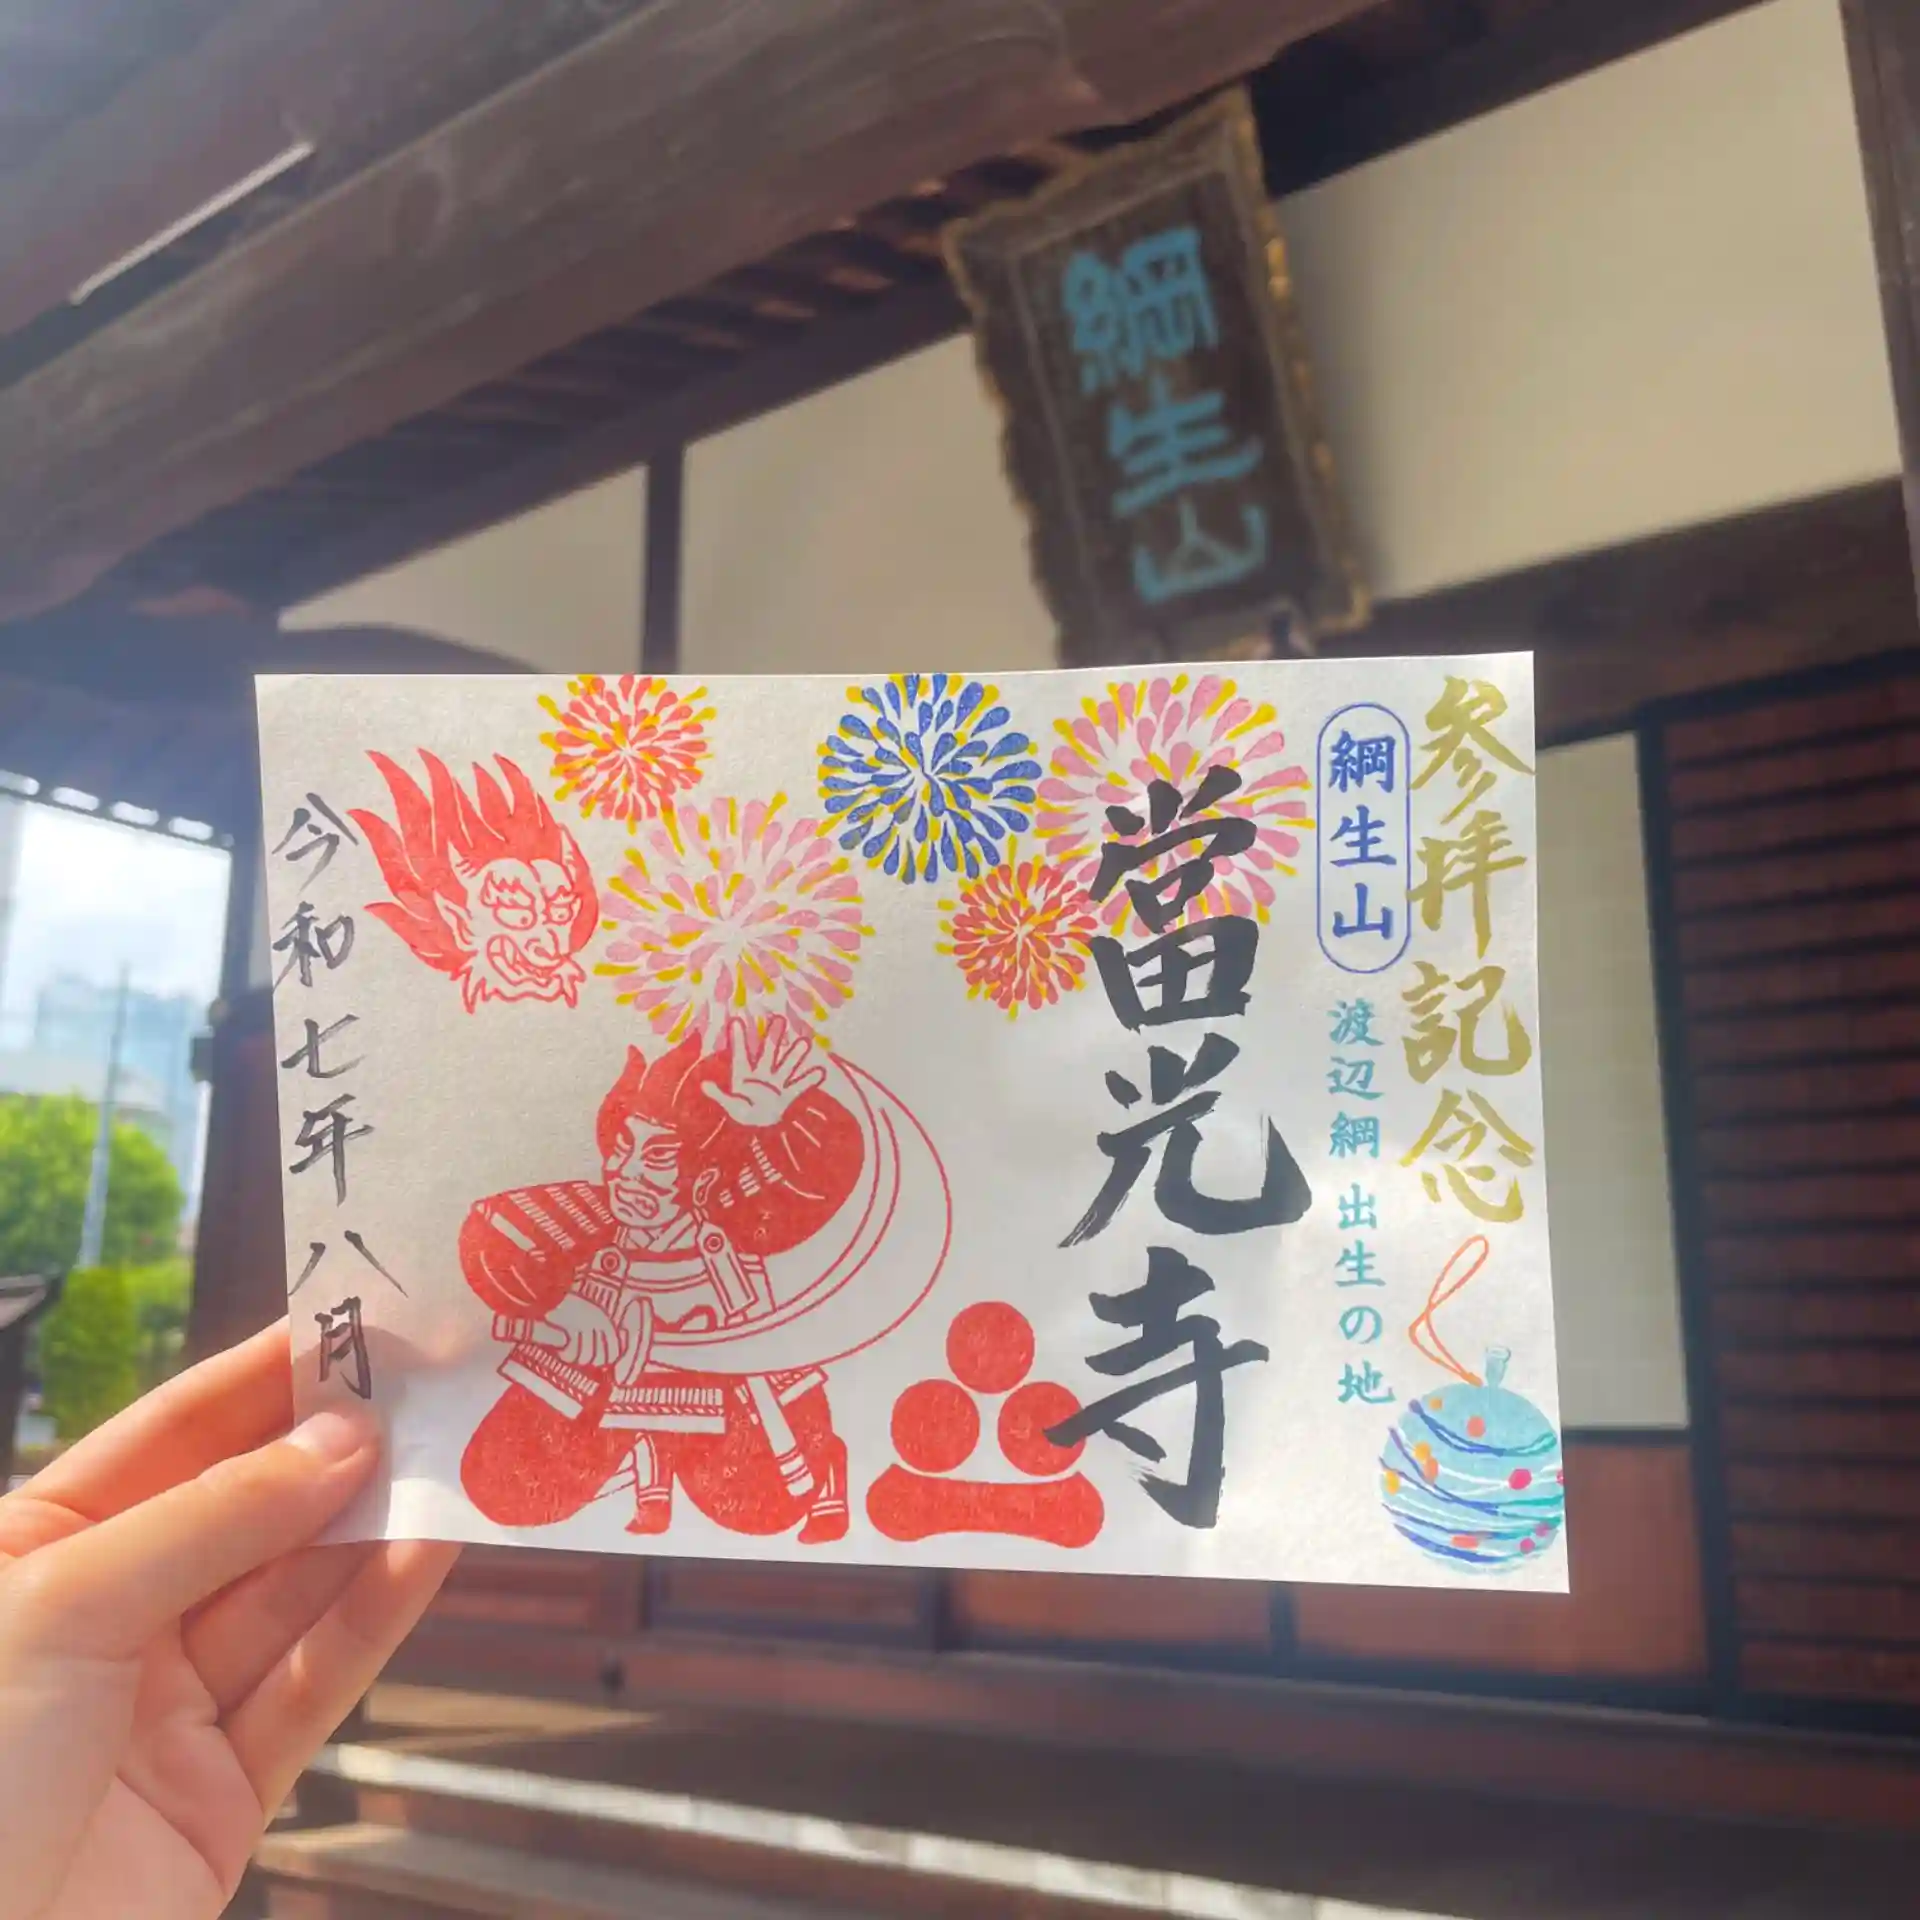 綱生山
参拝記念
綱生山
渡辺綱 出生の地
當光寺
令和七年八月